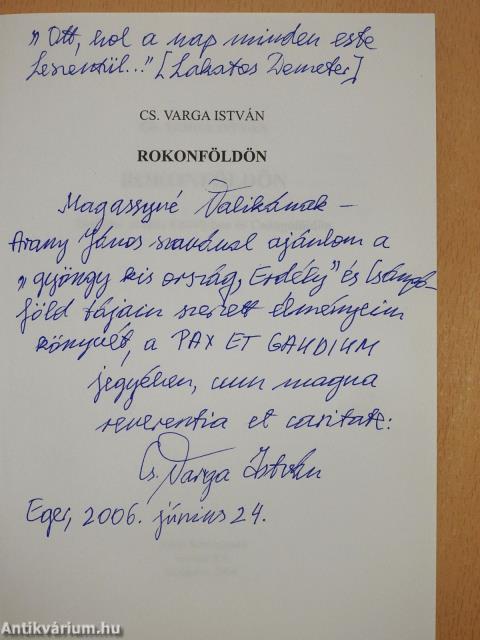 „Ott, hol a nap minden este
leszentül..." [Lakatos Demeter]
CS. VARGA ISTVÁN
ROKONFÖLDÖN
Magassyné Valikának –
Arany János szavával ajánlom a
„gyöngy kis ország, Erdély" és Csángó-
föld tájain szerzett élményeim
könyvét, a PAX ET GAUDIUM
jegyében, cum magna
reverentia et caritate:
Cs. Varga István
Eger, 2006. június 24.
Antikvárium.hu